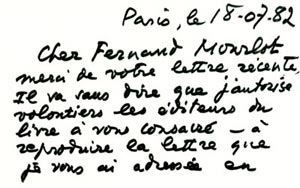 Paris, le 18-07-82
Cher Fernand Mourlot
merci de votre lettre récente.
Il va sans dire que j'autorise
volontiers les éditeurs du
livre à vous consacré – à
reproduire la lettre que
je vous ai adressée en